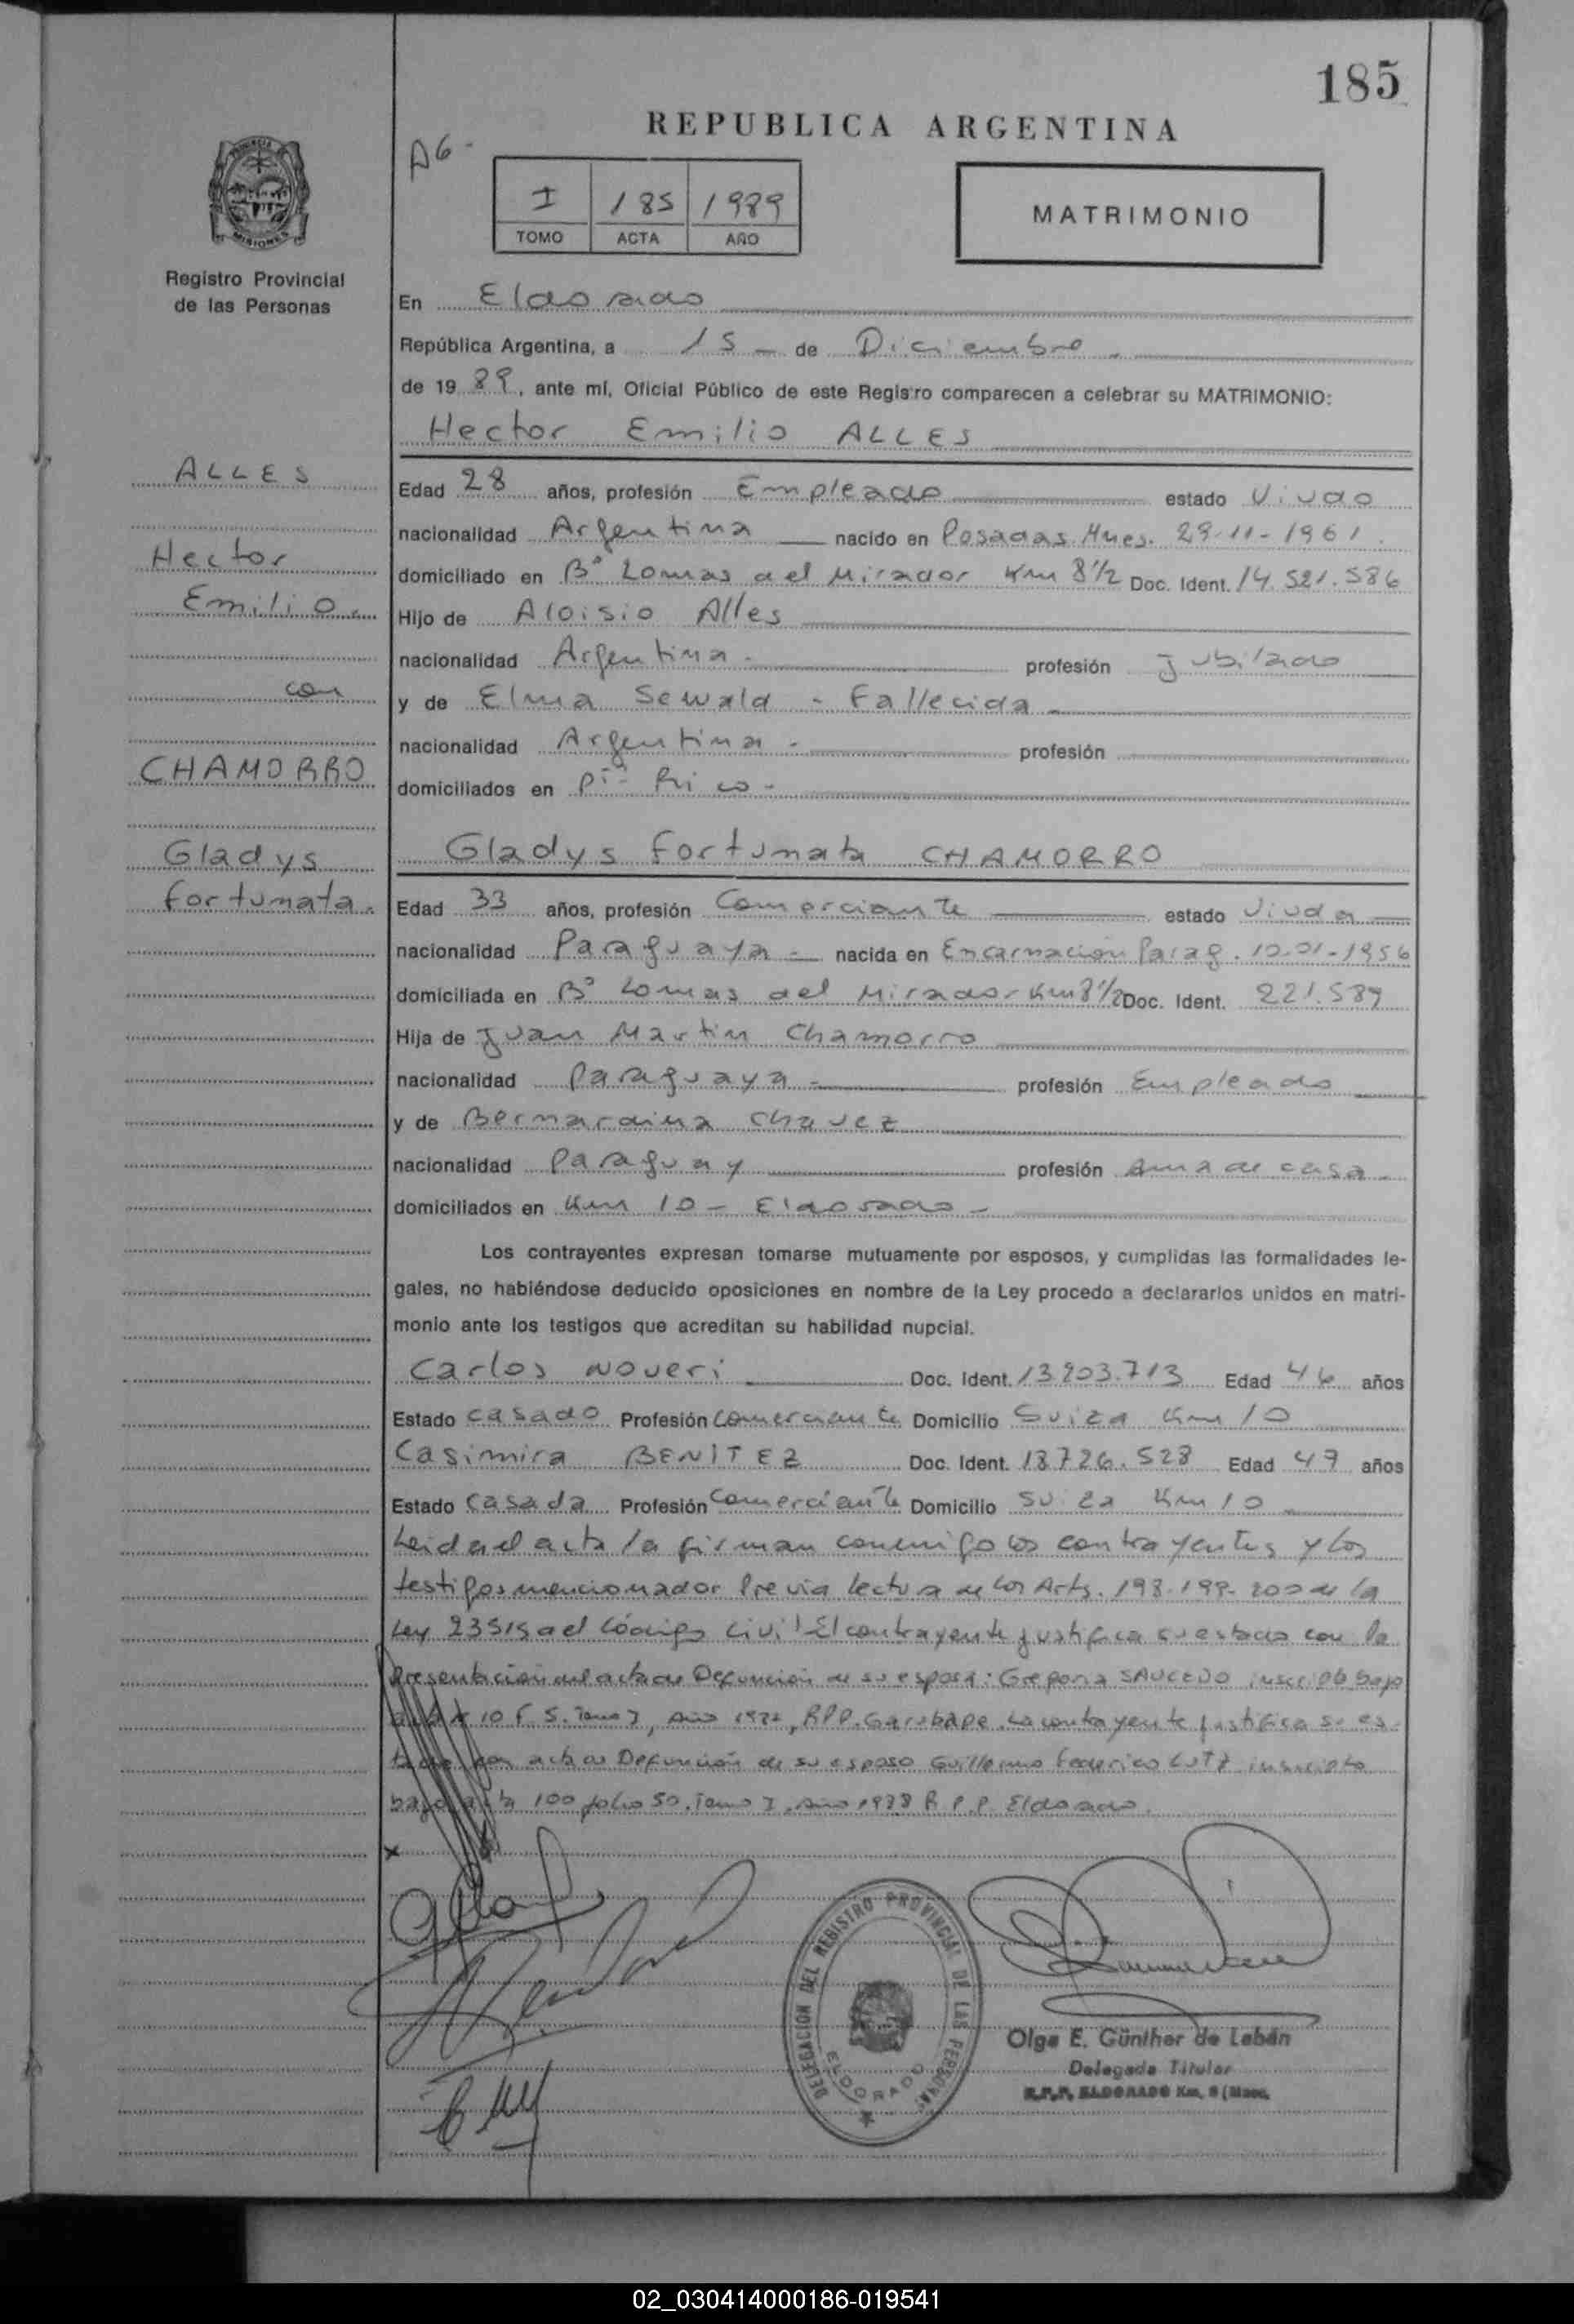 185
REPUBLICA ARGENTINA
A6-
I 185 1989
TOMO ACTA AÑO
MATRIMONIO
PROVINCIA DE
MISIONES
Registro Provincial
de las Personas
En Eldorado
República Argentina, a 15 - de Diciembre
de 1989, ante mí, Oficial Público de este Registro comparecen a celebrar su MATRIMONIO:
Hector Emilio ALLES
ALLES
Hector
Emilio.
con
CHAMORRO
Gladys
Fortunata.
Edad 28 años, profesión Empleado estado Viudo
nacionalidad Argentina nacido en Posadas Mnes. 29-11-1961.
domiciliado en B° Lomas del Mirador Km 8½ Doc. Ident. 14.521.586
Hijo de Aloisio Alles
nacionalidad Argentina. profesión Jubilado
y de Elma Sewald - Fallecida
nacionalidad Argentina - profesión
domiciliados en Pto Rico -
Gladys Fortunata CHAMORRO
Edad 33 años, profesión Comerciante estado Viuda
nacionalidad Paraguaya - nacida en Encarnación Parag. 10-01-1956
domiciliada en B° Lomas del Mirador Km 8½ Doc. Ident. 221.589
Hija de Juan Martin Chamorro
nacionalidad Paraguaya - profesión Empleado
y de Bernardina Chavez
nacionalidad Paraguay profesión Ama de casa
domiciliados en Km 10 - Eldorado -
Los contrayentes expresan tomarse mutuamente por esposos, y cumplidas las formalidades le-
gales, no habiéndose deducido oposiciones en nombre de la Ley procedo a declararlos unidos en matri-
monio ante los testigos que acreditan su habilidad nupcial.
Carlos Noveri Doc. Ident. 13.903.713 Edad 46 años
Estado casado Profesión Comerciante Domicilio Suiza Km 10
Casimira BENITEZ Doc. Ident. 18726.528 Edad 47 años
Estado Casada Profesión Comerciante Domicilio Suiza Km 10
Leida el acta la firman conmigo los contrayentes y los
testigos mencionados Previa lectura de los Arts. 198-199-200 de la
Ley 23515 del Código Civil El contrayente justifica su estado con la
presentación del acta de Defunción de su esposa: Gregoria SAUCEDO inscripta bajo
acta 10 F 5. Tomo I, Año, RPP. Garuhape. La contrayente justifica su es-
tado con acta de Defunción de su esposo Guillermo Federico LUTZ inscripto
bajo acta 100 folio 50, Tomo I, Año 1988 R.P.P. Eldorado.
x
DELEGACION DEL REGISTRO PROVINCIAL DE LAS PERSONAS
ELDORADO
Olga E. Günther de Labán
Delegada Titular
R.P.P. ELDORADO Km. 9 (Mnes.
02_030414000186-019541